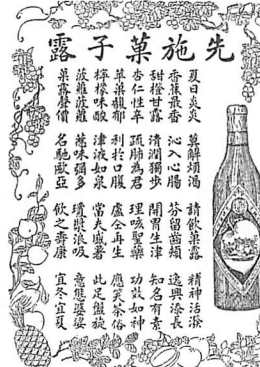 先施菓子露
夏日炎炎 莫解煩渴 請飲菓露 精神活潑
香蕉最香 沁入心腸 芬留齒頰 逸興長
甜橙甘露 清潤獨步 開胃生津 知名有素
杏仁性 疏肺為君 理咳聖藥 功效如神
草菓馥郁 利於口腹 盧仝再生 應笑茶俗
檸檬味酸 津液如泉 當夫盛暑 此足盤旋
菠蘿菠蘿 味彌多 瓊漿浪吸 意態婆娑
菓露聲價 名馳歐亞 飲之壽康 宜冬宜夏